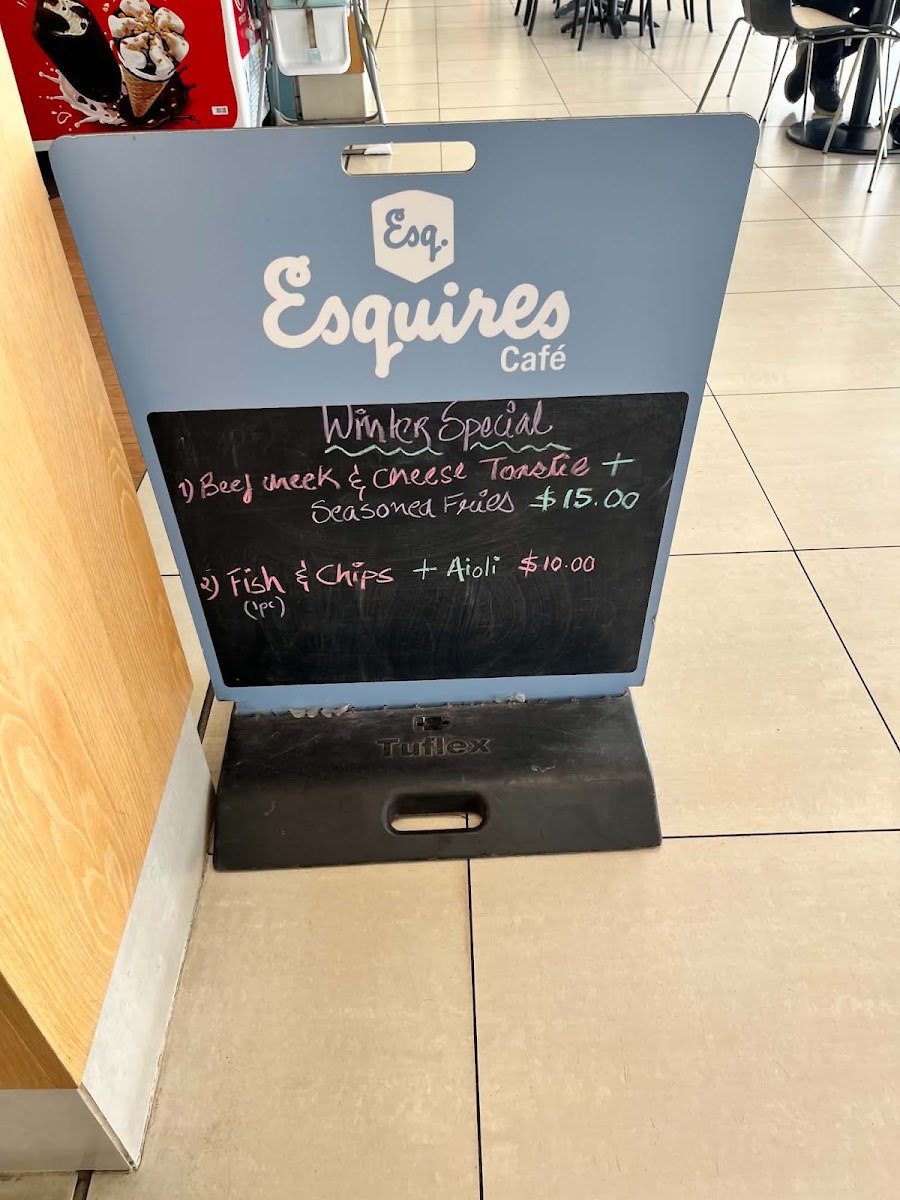 Esq.
Esquires
Café
Winter Special
1) Beef cheek & cheese Toastie +
Seasoned Fries $15.00
2) Fish & Chips + Aioli $10.00
(1pc)
Tuflex